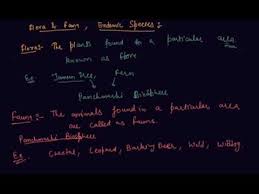 Flora & Fauna, Endemic Species:-
Flora:- The plants found in a particular area
known as flora
Ex. Jamun Tree, Fern
Panchmarhi Biosphere
Fauna:- The animals found in a particular area
are called as fauna.
Panchmarhi Biosphere
Ex. Cheetal, Leopard, Barking Deer, Wild, Wilddog